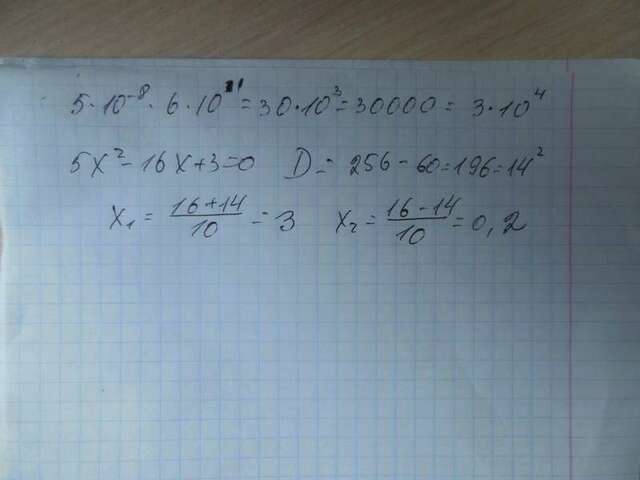 5·10⁻⁸·6·10¹¹=30·10³=30000=3·10⁴
5x²-16x+3=0 D=256-60=196=14²
x₁=(16+14)/10=3 x₂=(16-14)/10=0,2